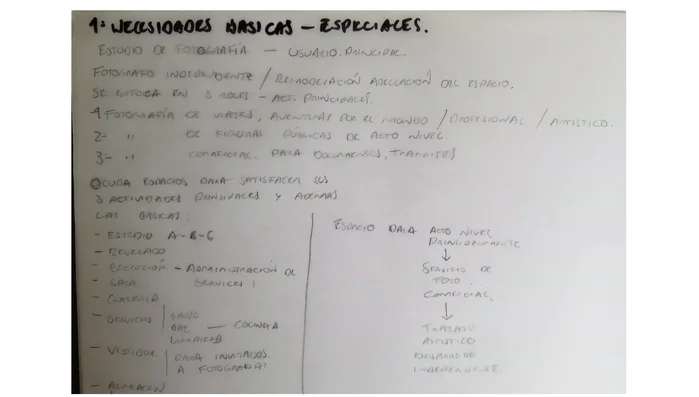 1= NECESIDADES BASICAS – ESPECIALES.
ESTUDIO DE FOTOGRAFÍA — USUARIO. PRINCIPAL.
FOTOGRAFO INDEPENDIENTE / REMODELACIÓN ADECUACIÓN DEL ESPACIO.
SE ENFOCA EN 3 ROLES – ACT. PRINCIPALES.
1 FOTOGRAFÍA DE VIAJES, AVENTURAS POR EL MUNDO / PROFESIONAL / ARTISTICO.
2- " DE FIGURAS PÚBLICAS DE ALTO NIVEL.
3- " COMERCIAL. PARA DOCUMENTOS, TRAMITES.
ESPACIOS PARA SATISFACER LAS
3 ACTIVIDADES PRINCIPALES Y ADEMAS
LAS BÁSICAS.
- ESTUDIO A-B-C
- REVELADO
- – ADMINISTRACIÓN DE SERVICES
- GALERIA
- SERVICIOS | BAÑO BAR — COCINETA
- VESTIDOR | PARA INVITADOS. A FOTOGRAFIAR
- ALMACEN
ESPACIO PARA ALTO NIVEL
PRINCIPALMENTE
↓
SERVICIO DE
FOTO
COMERCIAL.
↓
TRABAJO
ARTISTICO
INDEPENDIENTE